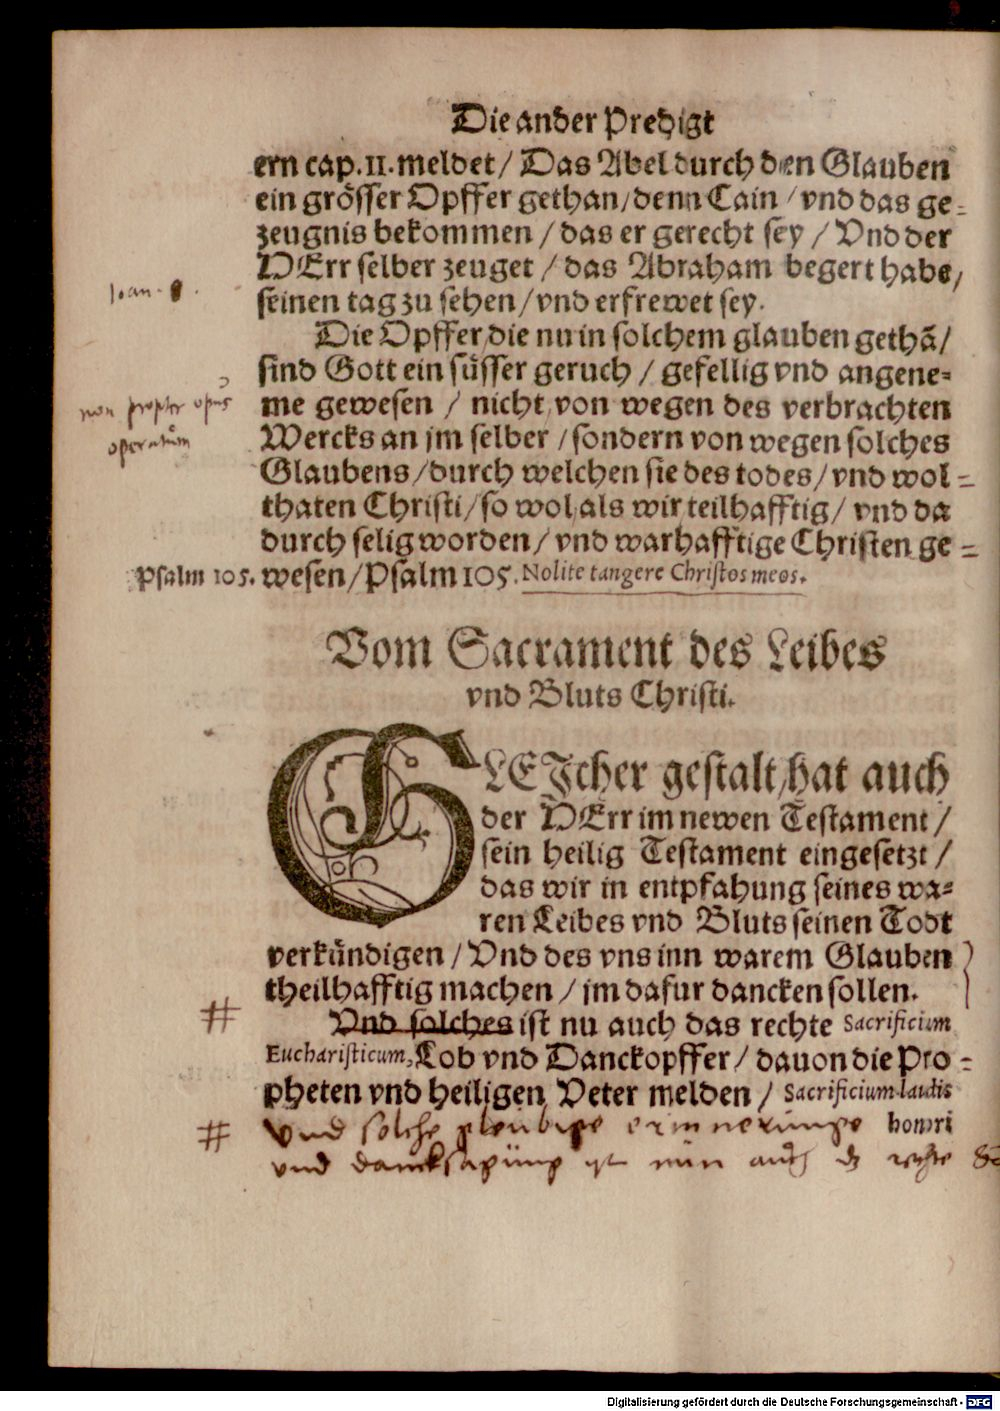 Die ander Predigt
ern cap. 11. meldet / Das Abel durch den Glauben
ein grösser Opffer gethan / denn Cain / vnd das ge-
zeugnis bekommen / das er gerecht sey / Vnd der
HErr selber zeuget / das Abraham begert habe /
Ioan. 8.
seinen tag zu sehen / vnd erfrewet sey.
Die Opffer / die nu in solchem glauben gethā /
sind Gott ein süsser geruch / gefellig vnd angene-
non propter opus
me gewesen / nicht von wegen des verbrachten
operatum
Wercks an jm selber / sondern von wegen solches
Glaubens / durch welchen sie des todes / vnd wol-
thaten Christi / so wol als wir teilhafftig / vnd da
durch selig worden / vnd warhafftige Christen ge-
Psalm 105.
wesen / Psalm 105. Nolite tangere Christos meos.
Vom Sacrament des Leibes
vnd Bluts Christi.
GLEIcher gestalt / hat auch
der HErr im newen Testament /
sein heilig Testament eingesetzt /
das wir in entpfahung seines wa-
ren Leibes vnd Bluts seinen Todt
verkündigen / Vnd des vns inn warem Glauben
theilhafftig machen / jm dafur dancken sollen.
# Vnd solches ist nu auch das rechte Sacrificium
Eucharisticum, Lob vnd Danckopffer / dauon die Pro-
pheten vnd heiligen Veter melden / Sacrificium laudis
honori
# Vnd solche gleubige erinnerunge
vnd dancksagung ist nun auch dz rechte &c
Digitalisierung gefördert durch die Deutsche Forschungsgemeinschaft - DFG